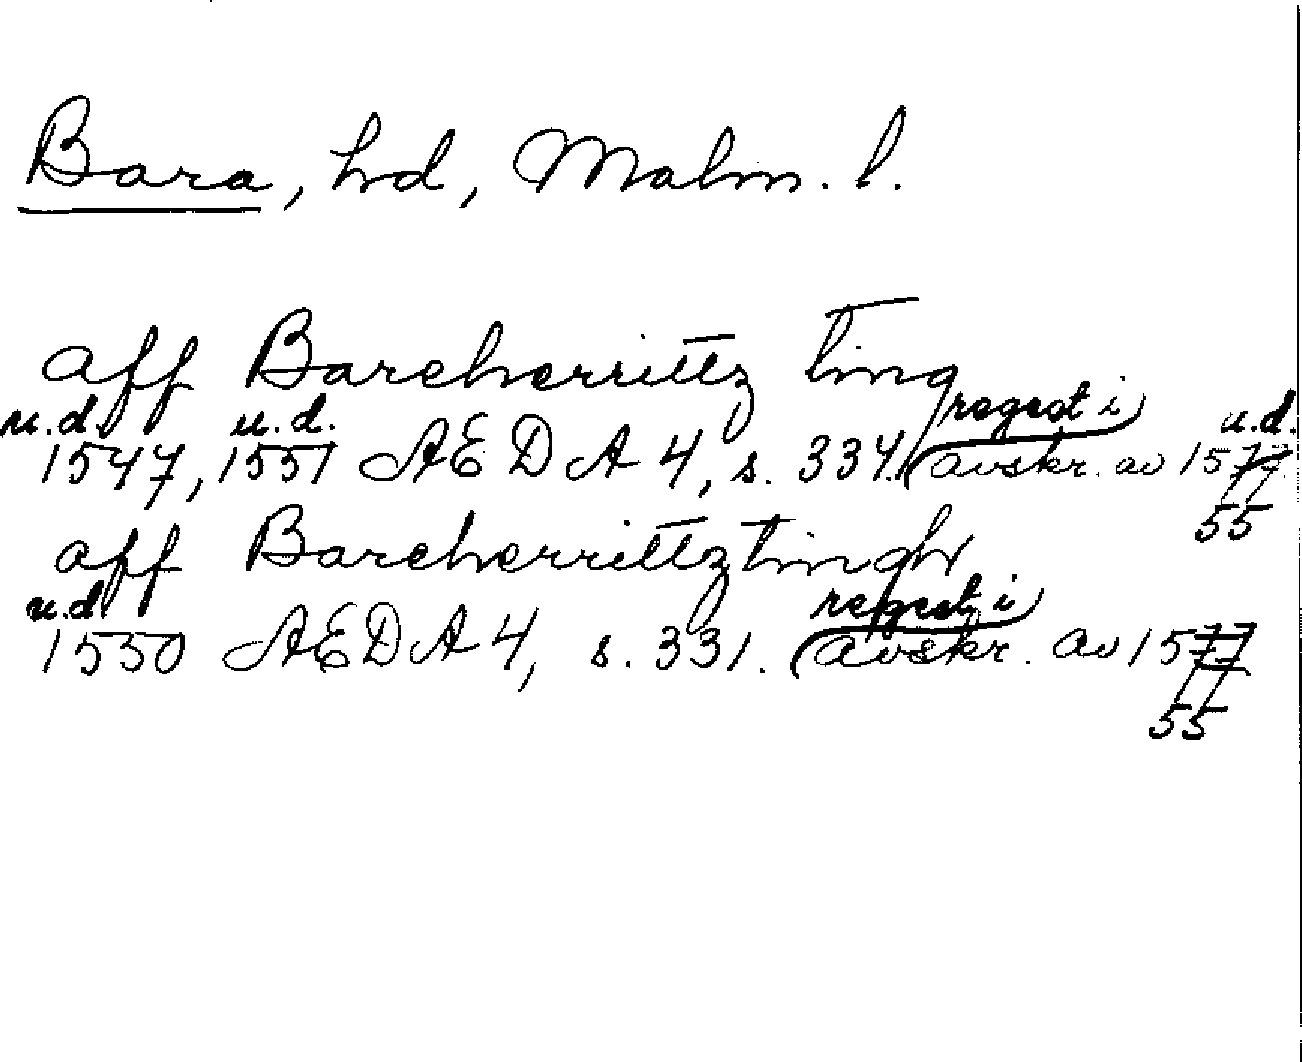 Bara, hd, Malm. l.
aff Bareherrittz ting
u.d. u.d. regest i u.d.
1547, 1551 AEDA 4, s. 334. (avskr. av 1577
55
aff Bareherrittztingh
u.d. regest i
1550 AEDA 4, s. 331. (avskr. av 1577
55